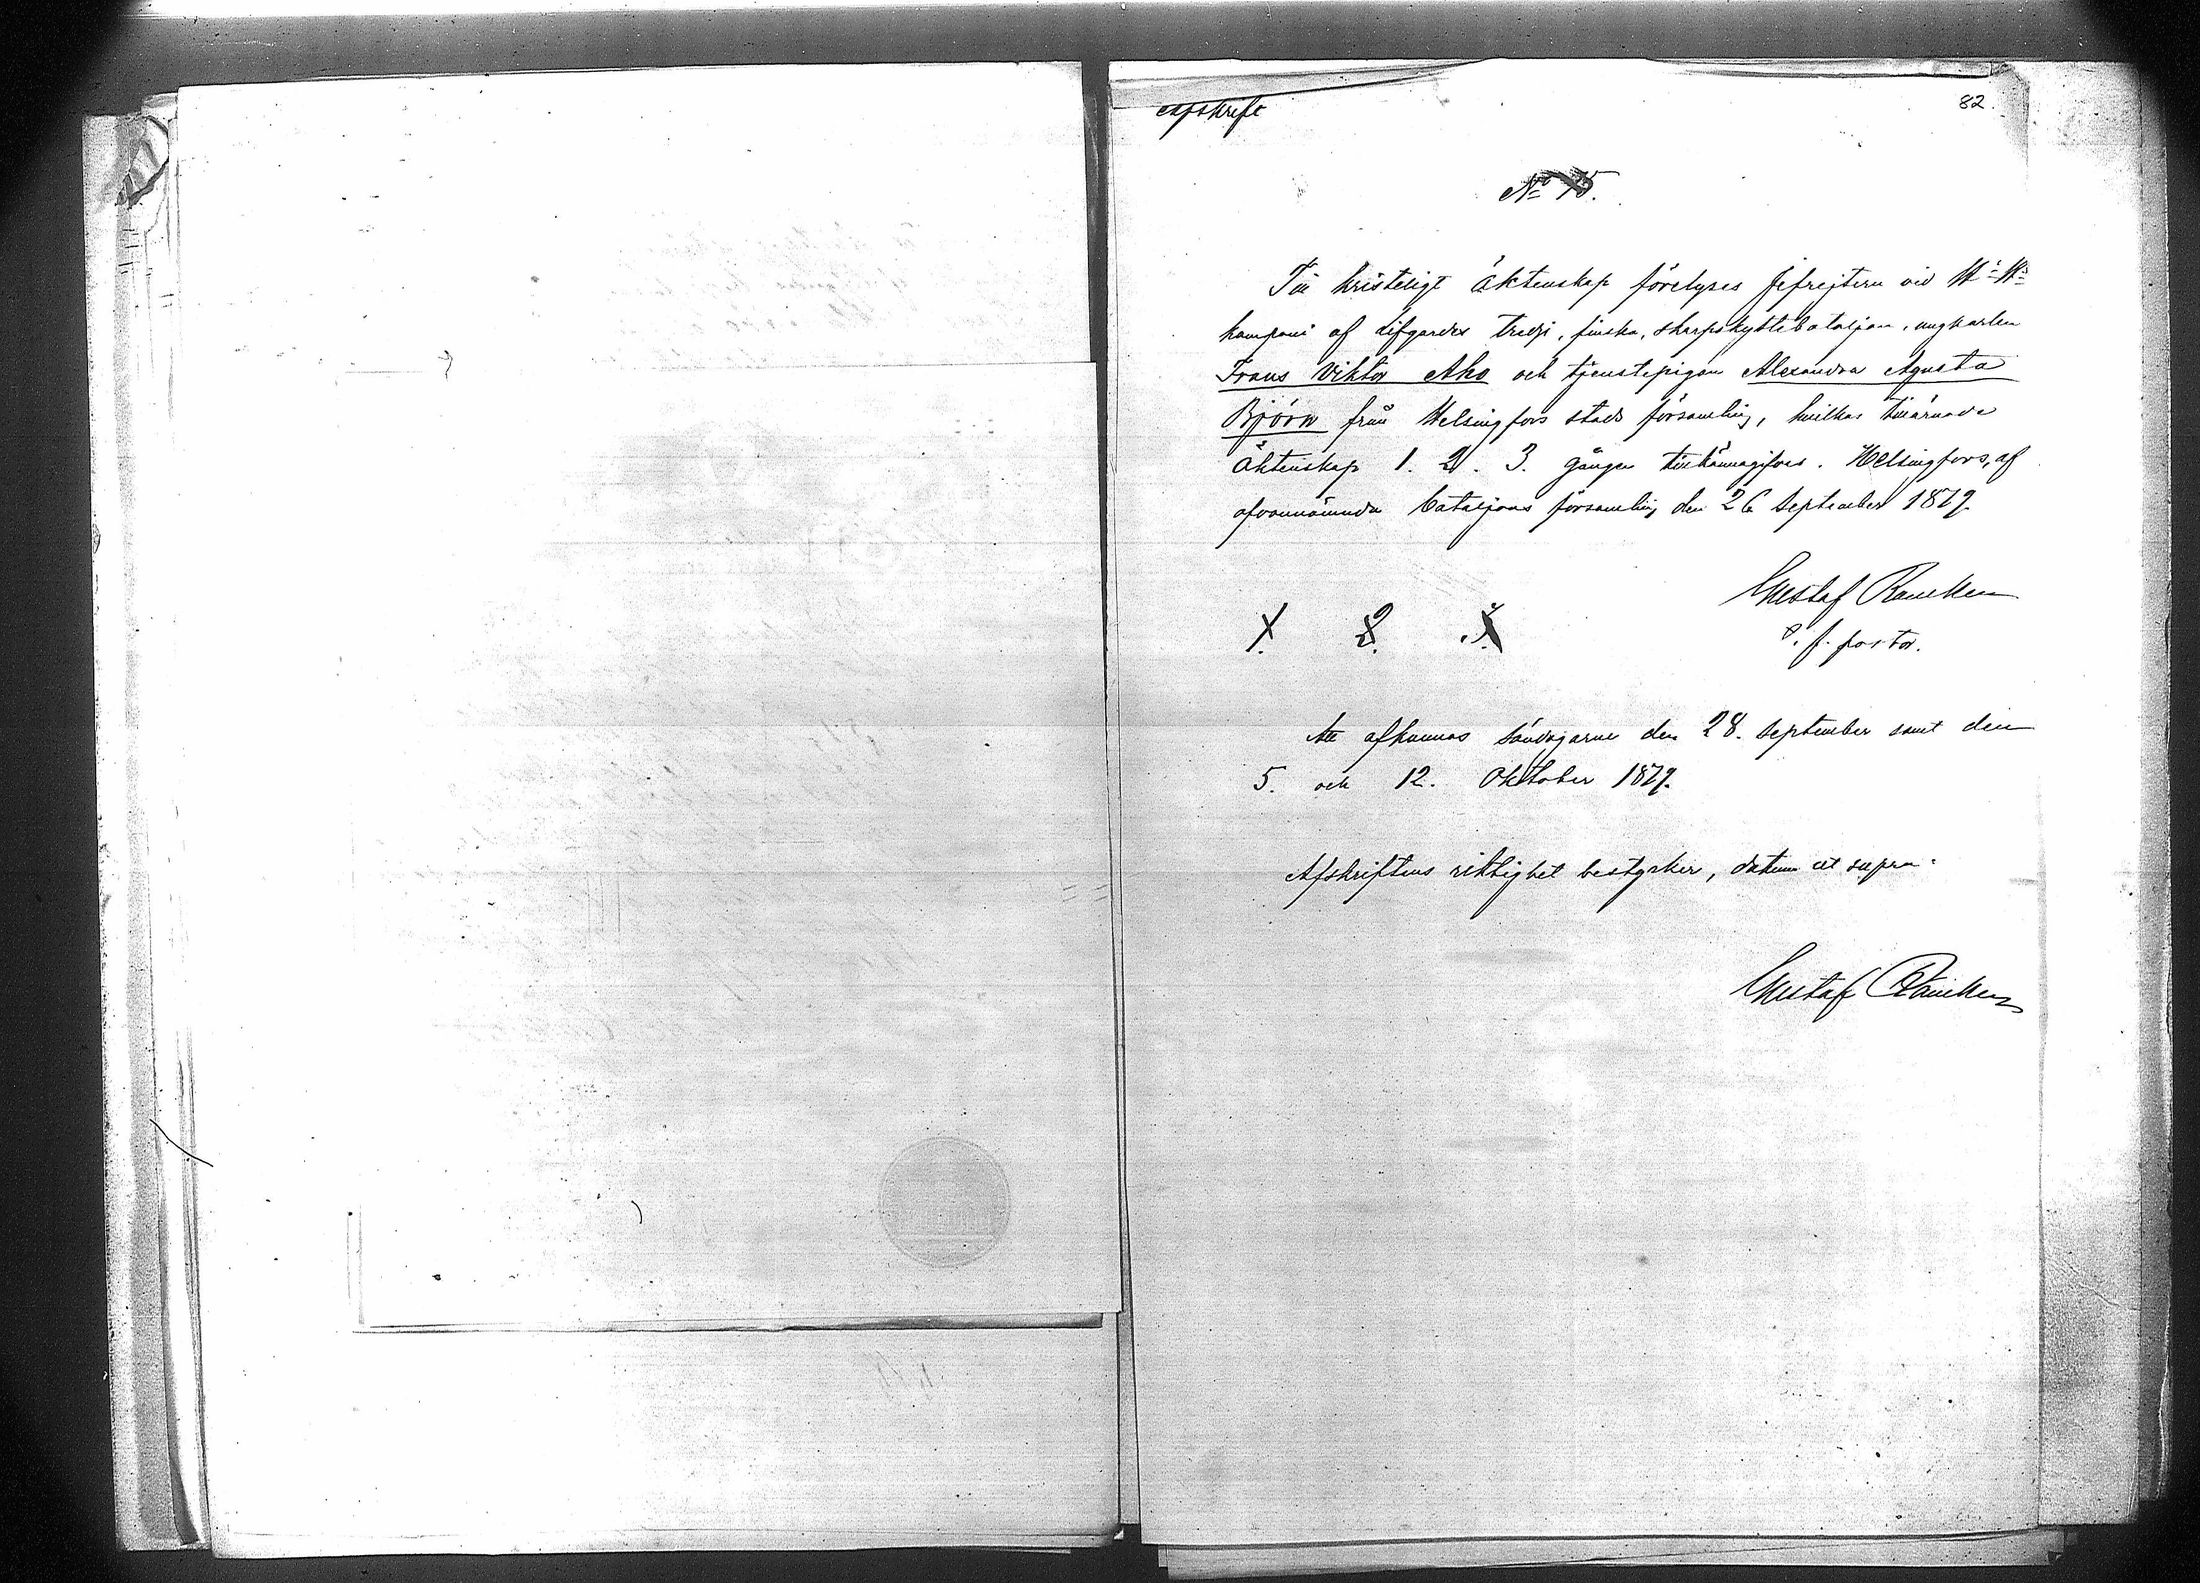 Afskrift
82.
No 75.
Till kristeligt äktenskap förelyses Jefrejtern vid
kompani af Lifgardes tredje, finska, skarpskyttebataljon, ungkarlen
Frans Viktor Aho och tjenstepigan Alexandra Agusta
Björn från Helsingfors stads församling, hvilkas tillärnade
äktenskap 1. 2. 3. gången tillkännagifves. Helsingfors, af
ofvannämnda bataljons församling den 26 September 1879.
Gustaf Rancken
1. 2. 3.
v. f. pastor.
Att afkunnas söndagarne den 28. September samt den
5. och 12. Oktober 1879.
Afskriftens riktighet bestyrker, datum ut supra.
Gustaf Rancken